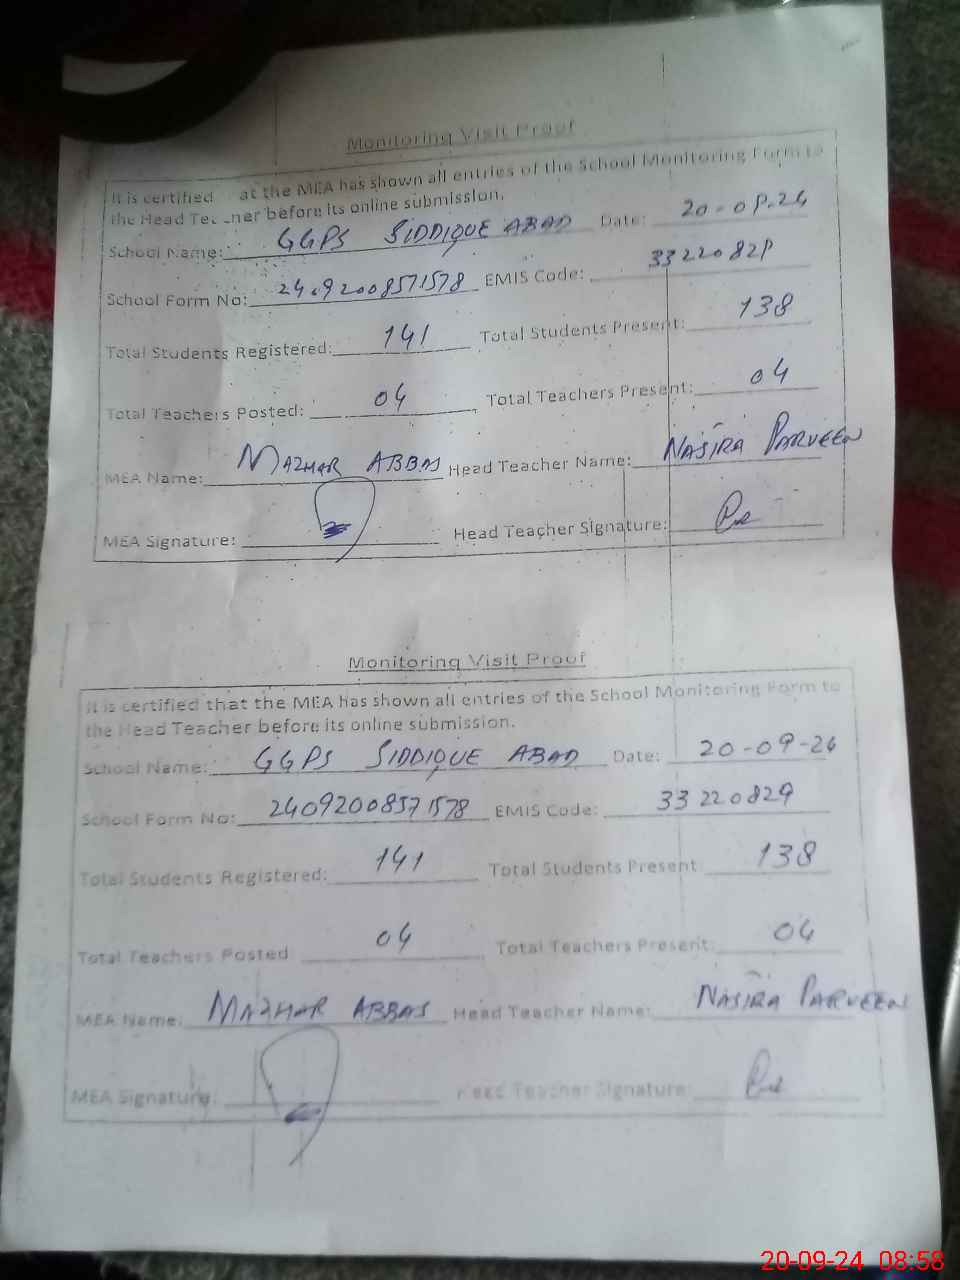 Monitoring Visit Proof
It is certified at the MEA has shown all entries of the School Monitoring Form to
the Head Teacher before its online submission.
School Name: GGPS SIDDIQUE ABAD Date: 20-09-24
School Form No: 24092008571578 EMIS Code: 33220829
Total Students Registered: 141 Total Students Present: 138
Total Teachers Posted: 04 Total Teachers Present: 04
MEA Name: MAZHAR ABBAS Head Teacher Name: NASIRA PARVEEN
MEA Signature: Head Teacher Signature:
Monitoring Visit Proof
It is certified that the MEA has shown all entries of the School Monitoring Form to
the Head Teacher before its online submission.
School Name: GGPS SIDDIQUE ABAD Date: 20-09-24
School Form No: 24092008571578 EMIS Code: 33220829
Total Students Registered: 141 Total Students Present: 138
Total Teachers Posted 04 Total Teachers Present: 04
MEA Name: MAZHAR ABBAS Head Teacher Name: NASIRA PARVEEN
MEA Signature: Head Teacher Signature:
20-09-24 08:58